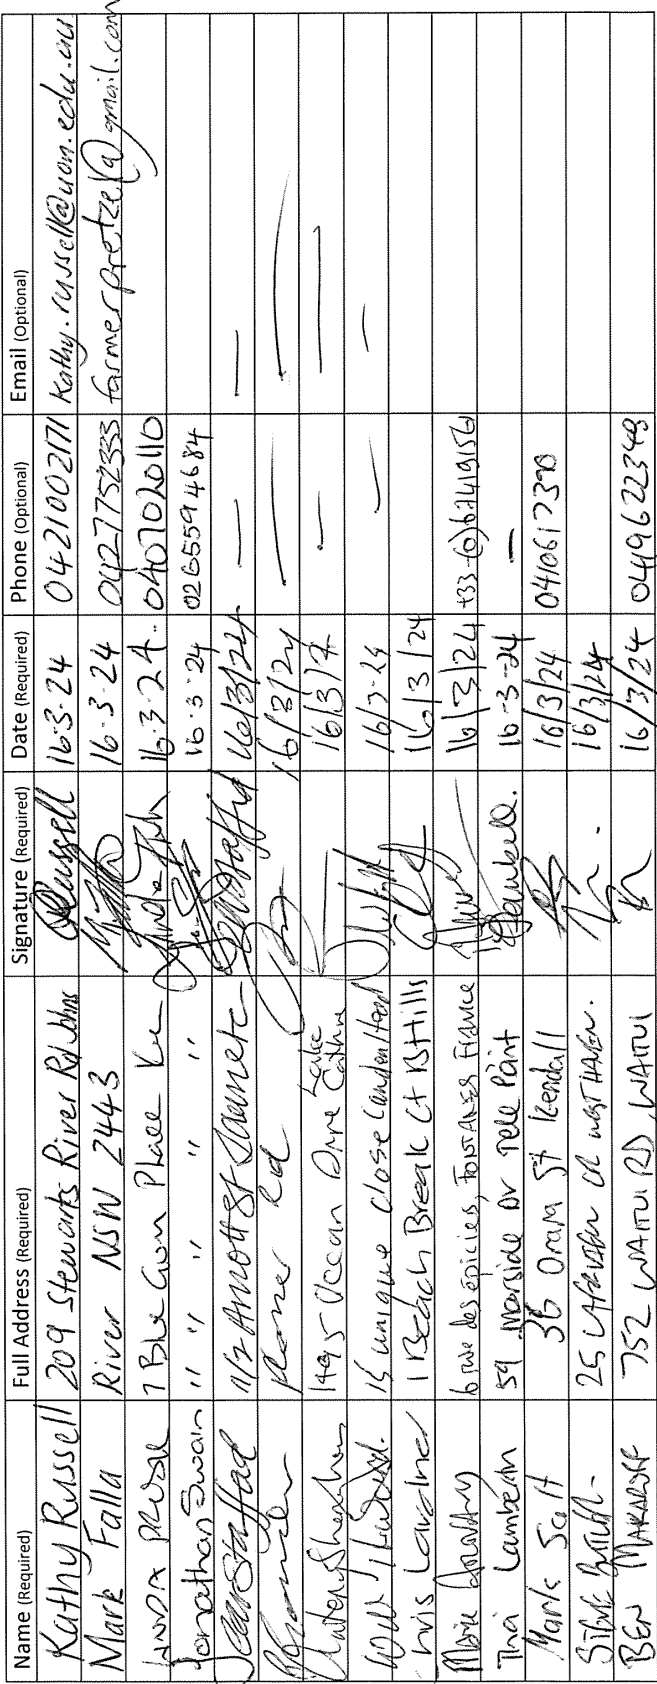 Name (Required) Full Address (Required) Signature (Required) Date (Required) Phone (Optional) Email (Optional)
Kathy Russell 209 Stewarts River Rd Johns Russell 16·3·24 0421002171 Kathy.russell@uon.edu.au
Mark Falla River NSW 2443 16·3·24 0427752333 farmerpretzel@gmail.com
7 Blue Gum Place 16·3·24 0407020110
Jonathan Swain " " " " " 16·3·24 0265594684
Jean Stafford 11/2 Arnott St 16/3/24 — —
Rd 16/3/24 — —
1495 Ocean Drive Lake Cathie 16/3/ — —
15 unique close Camden Head 16/3-24 — —
hris Lardner 1 Beach Break Ct B Hills 16/3/24
Marie 6 rue des épicies, FONTANES France 16/3/24 +33-(0)
Tria Lamberth 59 Dr Pele Point 16-3-24 —
Mark Scott 36 Oram St Kendall 16/3/24 0410617390
25 CR WEST HAVEN. 16/3/24
BEN MAKAROFF 752 WAITUI RD WAITUI 16/3/24 0419622348